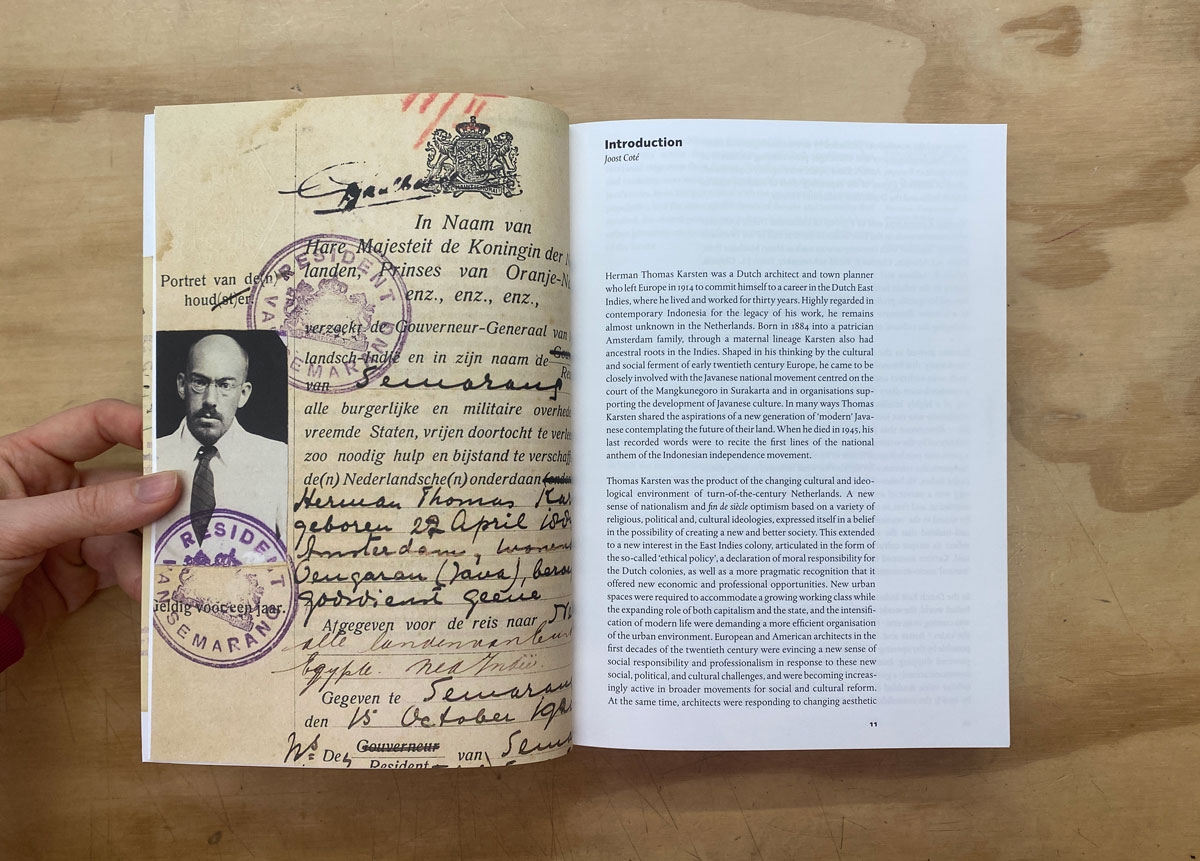 In Naam van
Hare Majesteit de Koningin der
landen, Prinses van Oranje-Na
enz., enz., enz.,
Portret van de(n)
houd(st)er.
verzoekt de Gouverneur-Generaal van
landsch-Indië en in zijn naam de
van Semarang
alle burgerlijke en militaire overhede
vreemde Staten, vrijen doortocht te verle
zoo noodig hulp en bijstand te verschaff
de(n) Nederlandsche(n) onderdaan
Herman Thomas Kar
geboren 22 April 188
Amsterdam, wonen
Oengaran (Java), beroe
godsdienst geene
Afgegeven voor de reis naar
alle landen van Eur
Egypte. Ned Indië.
Gegeven te Semaran
den 15 October 19
De Gouverneur van Sema
Resident
RESIDENT
VAN SEMARANG
RESIDENT
VAN SEMARANG
Geldig voor een jaar.
Introduction
Joost Coté
Herman Thomas Karsten was a Dutch architect and town planner
who left Europe in 1914 to commit himself to a career in the Dutch East
Indies, where he lived and worked for thirty years. Highly regarded in
contemporary Indonesia for the legacy of his work, he remains
almost unknown in the Netherlands. Born in 1884 into a patrician
Amsterdam family, through a maternal lineage Karsten also had
ancestral roots in the Indies. Shaped in his thinking by the cultural
and social ferment of early twentieth century Europe, he came to be
closely involved with the Javanese national movement centred on the
court of the Mangkunegoro in Surakarta and in organisations sup-
porting the development of Javanese culture. In many ways Thomas
Karsten shared the aspirations of a new generation of ‘modern’ Java-
nese contemplating the future of their land. When he died in 1945, his
last recorded words were to recite the first lines of the national
anthem of the Indonesian independence movement.
Thomas Karsten was the product of the changing cultural and ideo-
logical environment of turn-of-the-century Netherlands. A new
sense of nationalism and fin de siècle optimism based on a variety of
religious, political and, cultural ideologies, expressed itself in a belief
in the possibility of creating a new and better society. This extended
to a new interest in the East Indies colony, articulated in the form of
the so-called ‘ethical policy’, a declaration of moral responsibility for
the Dutch colonies, as well as a more pragmatic recognition that it
offered new economic and professional opportunities. New urban
spaces were required to accommodate a growing working class while
the expanding role of both capitalism and the state, and the intensifi-
cation of modern life were demanding a more efficient organisation
of the urban environment. European and American architects in the
first decades of the twentieth century were evincing a new sense of
social responsibility and professionalism in response to these new
social, political, and cultural challenges, and were becoming increas-
ingly active in broader movements for social and cultural reform.
At the same time, architects were responding to changing aesthetic
11